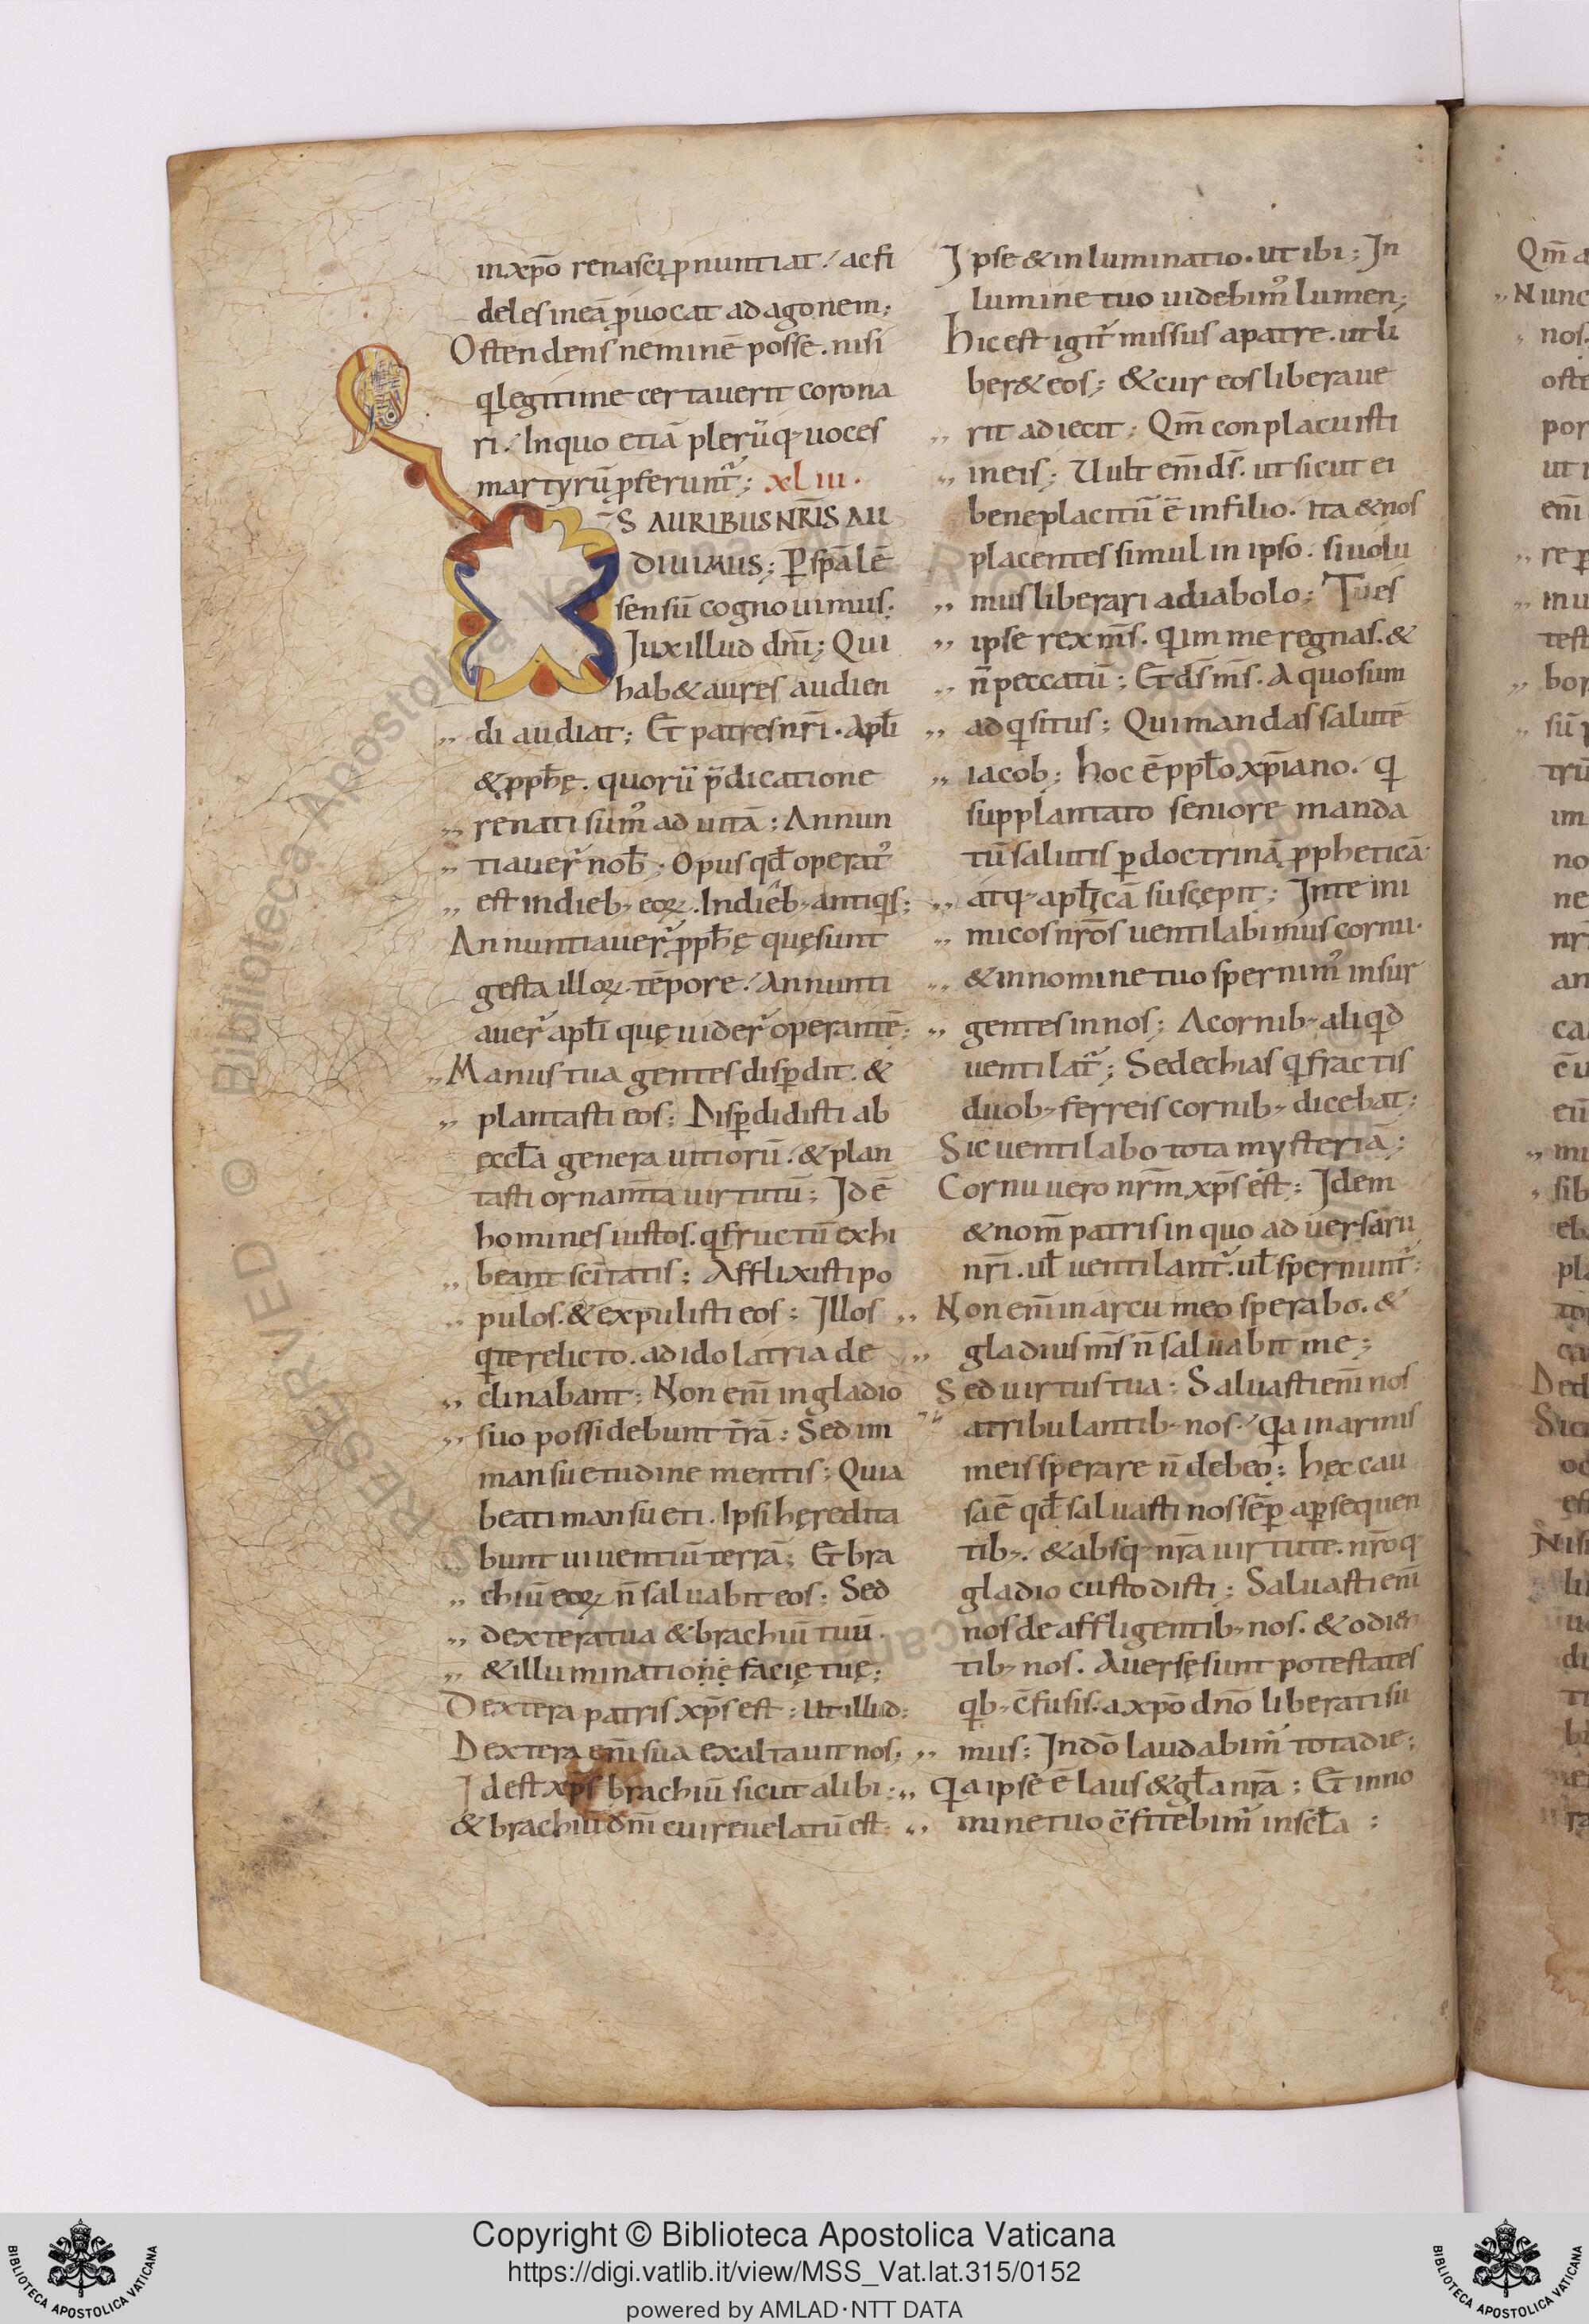 in xp̄o renascį p̄nuntiat. ac fi
deles in eā p̄uocat ad agonem;
Ostendens neminē posse. nisi
q legitime certauerit corona
ri. In quo etiā plerūq; uoces
martyrū p̄ferunt̄; xliii.
S AURIBUS NR̄IS AU
DIUIMUS; P sp̄alē
sensū cognouimus.
Jux illud dn̄i; Qui
hab& aures audien
di audiat; Et patres nr̄i. apl̄i
& pph̄ę. quorū p̄dicatione
renati sum᾽ ad uitā; Annun
tiauer̄ nob̄; Opus qd̄ operat᾽
est in dieb; eoꝝ. In dieb; antiqs;
Annuntiauer̄ pph̄ę quę sunt
gesta illoꝝ tēpore. Annunti
auer̄ apl̄i quę uider̄ operantē;
Manus tua gentes disꝑdit. &
plantasti eos; Disꝑdidisti ab
eccl̄a genera uitiorū. & plan
tasti ornam̄ta uirtutū; Id ē
homines iustos. q fructū exhi
beant sc̄itatis; Afflixisti po
pulos. & expulisti eos; Illos
q te relicto. ad idolatria de
clinabant; Non em̄ in gladio
suo possidebunt t̄rā; Sed in
mansuetudine mentis; Quia
beati mansueti. Ipsi hęredita
bunt uiuentiū terrā; Et bra
chiū eoꝝ n̄ saluabit eos; Sed
dextera tua & brachiū tuū.
& illuminatione facię tuę;
Dextera patris xp̄s est; Ut illud;
Dextera em̄ sua exaltauit nos;
Id est xp̄s brachiū sicut alibi;
& brachiū dn̄i cui reuelatū est.
Ipse & inluminatio. ut ibi; In
lumine tuo uidebim᾽ lumen;
Hic est igit̄ missus a patre. ut li
ber& eos; & cur eos liberaue
rit adiecit; Qm̄ conplacuisti
in eis; Uult em̄ ds̄. ut sicut ei
beneplacitū ē in filio. ita & nos
placentes simul in ipso. si uolu
mus liberari a diabolo; Tu es
ipse rex ms̄. q im me regnas. &
n̄ peccatū; Et ds̄ ms̄. A quo sum
adqsitus; Qui mandas salutē
iacob; Hoc ē ppl̄o xp̄iano. q
supplantato seniore manda
tū salutis ꝑ doctrinā ppheticā
atq; apl̄icā suscępit; In te ini
micos nr̄os uentilabimus cornu.
& in nomine tuo spernim᾽ insur
gentes in nos; A cornib; aliqd
uentilat̄; Sedechias q fractis
duob; ferreis cornib; dicebat;
Sic uentilabo tota mysteriā;
Cornu uero nr̄m xp̄s est; Idem
& nom̄ patris in quo aduersarii
nr̄i. ul̄ uentilant̄. ul̄ spernunt̄;
Non em̄ in arcu meo sperabo. &
gladius ms̄ n̄ saluabit me;
Sed uirtus tua; Saluasti em̄ nos
a tribulantib; nos. qa in armis
meis sperare n̄ debeo; Hęc cau
sa ē qd̄ saluasti nos sēꝑ a ꝑsequen
tib;. & absq; nr̄a uirtute. nr̄oq;
gladio custodisti; Saluasti em̄
nos de affligentib; nos. & odien
tib; nos. Auersę sunt potestates
qb; c̄fusis. a xp̄o dn̄o liberati su
mus; In dō laudabim᾽ tota die;
Qa ipse ē laus & gl̄a nr̄a; Et in no
mine tuo c̄fitebim᾽ in scl̄a;
Copyright © Biblioteca Apostolica Vaticana
https://digi.vatlib.it/view/MSS_Vat.lat.315/0152
powered by AMLAD·NTT DATA
BIBLIOTECA APOSTOLICA VATICANA
BIBLIOTECA APOSTOLICA VATICANA